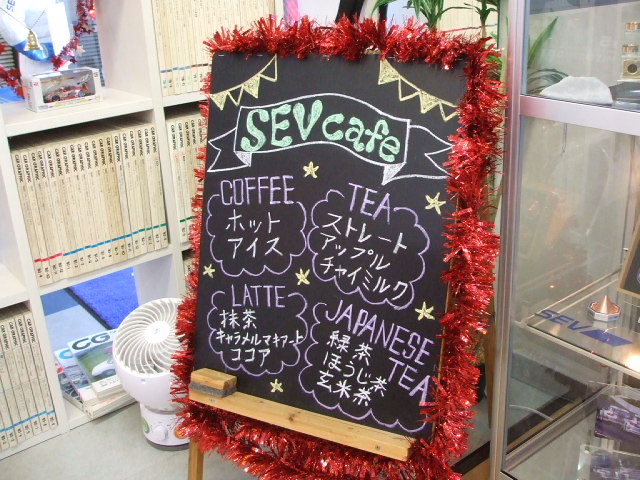 SEV cafe
COFFEE
ホット
アイス
TEA
ストレート
アップル
チャイミルク
LATTE
抹茶
キャラメルマキアート
ココア
JAPANESE
TEA
緑茶
ほうじ茶
玄米茶
SEV
CG
CAR GRAPHIC